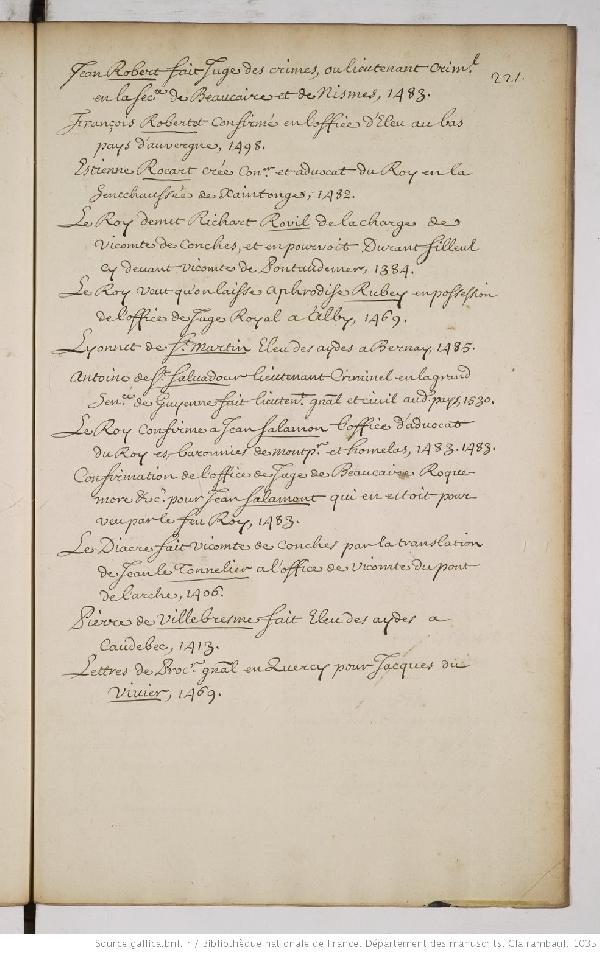 221.
Jean Robert fait Juge des crimes, ou lieutenant Crim.l
en la Sec.ée de Beaucaire et de Nismes, 1483.
François Robertet Confirmé en l'office d'Eleu au bas
pays d'auvergne, 1498.
Estienne Rocart crée Con.er et advocat du Roy en la
Senechaussée de Xaintonge, 1482.
Le Roy demit Richart Rovil de la charge de
Vicomte de Conches, et en pourvoit Durant filleul
cy devant vicomte de Pontaudemer, 1384.
Le Roy veut qu'on laisse Aphrodise Rubey en possession
de l'office de Juge Royal a Alby, 1469.
Lyonnet de S.t Martin Eleu des aydes a Bernay, 1485.
Antoine de S.t Salvadour lieutenant Criminel en la grand
Sen.ée de Guyenne fait lieuten.t gnâl et civil aud. pays, 1530.
Le Roy Confirme a Jean Salamon l'office d'advocat
du Roy es baronnies de montp.r et homelas, 1483. 1483.
Confirmation de l'office de Juge de Beaucaire Roque
more &c. pour Jean Salamont qui en estoit pour
veu par le feu Roy, 1483.
Le Diacre fait vicomte de Conches par la translation
de Jean le Tonnelier a l'office de Vicomte du pont
de l'arche, 1406.
Pierre de Villebresme fait Eleu des aydes a
Caudebec, 1413.
Lettres de Proc.r gnâl en Quercy pour Jacques du
Vivier, 1469.
Source gallica.bnf.fr / Bibliothèque nationale de France. Département des manuscrits. Clairambault. 1035